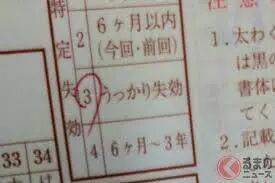 特定失効
2 6ヶ月以内
(今回・前回)
3 うっかり失効
4 6ヶ月〜3年
33 34
1.太わく
は黒の
書体に
て
2.記載
くるまのニュース